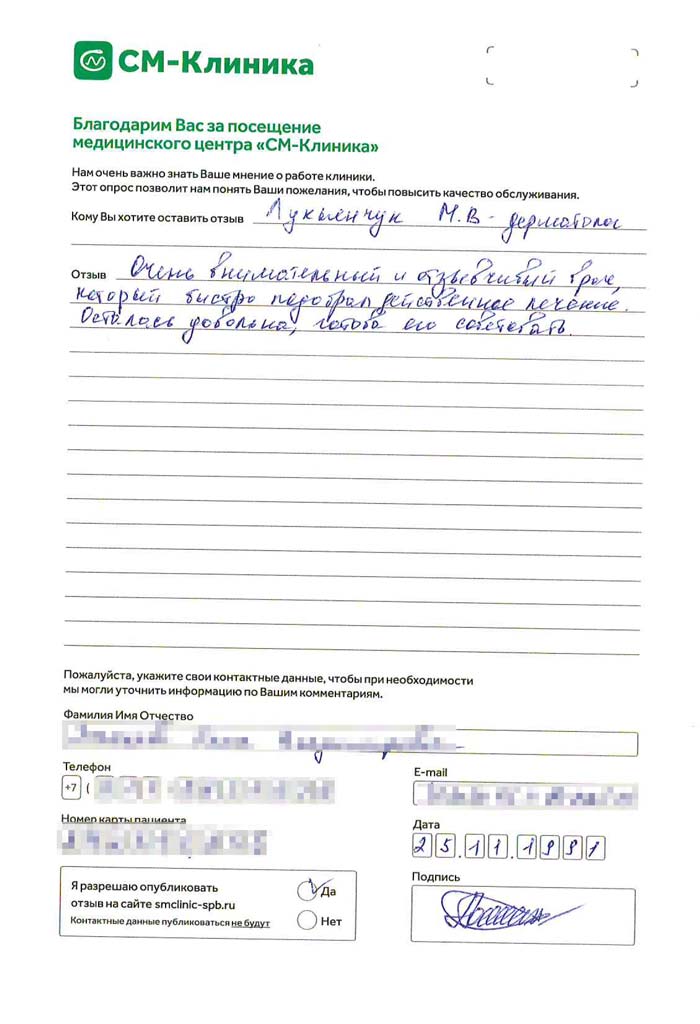 СМ-Клиника
Благодарим Вас за посещение
медицинского центра «СМ-Клиника»
Нам очень важно знать Ваше мнение о работе клиники.
Этот опрос позволит нам понять Ваши пожелания, чтобы повысить качество обслуживания.
Кому Вы хотите оставить отзыв Лукьянчук М.В - дерматолог
Отзыв Очень внимательный и отзывчивый врач,
который быстро подобрал действенное лечение.
Осталась довольна, готова его советовать.
Пожалуйста, укажите свои контактные данные, чтобы при необходимости
мы могли уточнить информацию по Вашим комментариям.
Фамилия Имя Отчество
Телефон
E-mail
+7 (
Номер карты пациента
Дата
25.11.1991
Подпись
Я разрешаю опубликовать
отзыв на сайте smclinic-spb.ru
Контактные данные публиковаться не будут
Да
Нет